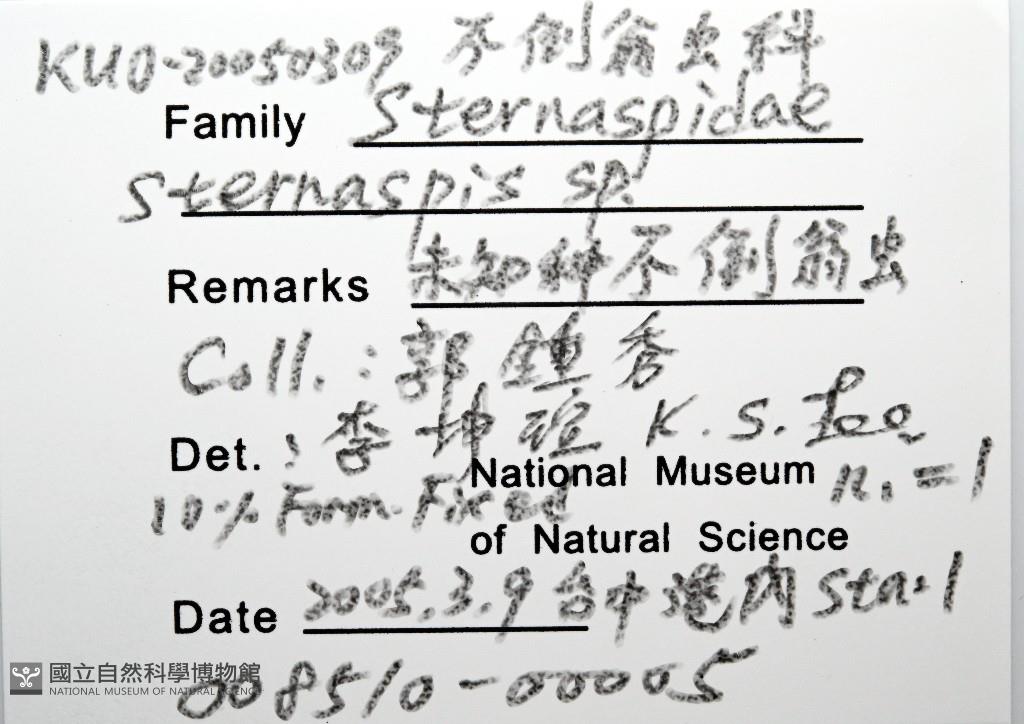 KUO-20050309 不倒翁虫科
Family Sternaspidae
Sternaspis sp.
Remarks 未知种不倒翁虫
Coll. : 郭鐘秀
Det. : 李坤瑄 K. S. Lee
National Museum n. = 1
10% Form. Fixed
of Natural Science
Date 2005.3.9 台中港內 Sta. 1
國立自然科學博物館
NATIONAL MUSEUM OF NATURAL SCIENCE
008510-00005